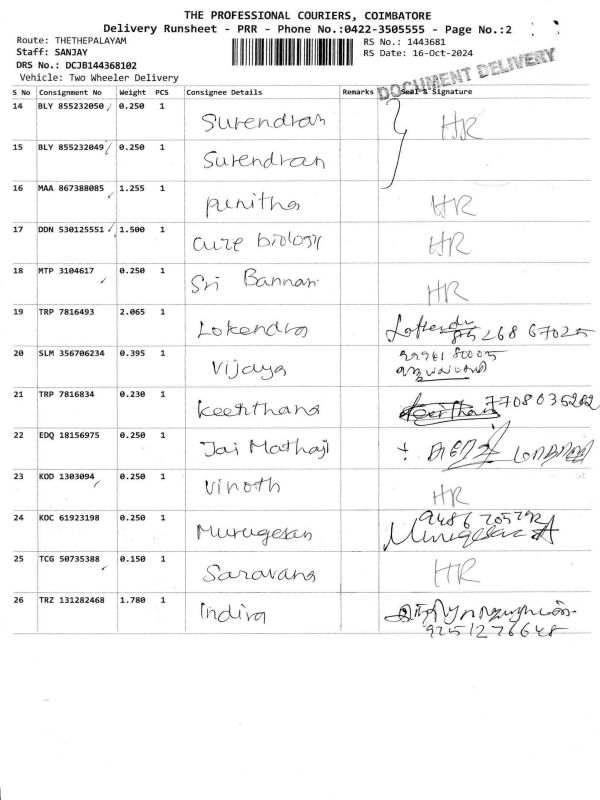 THE PROFESSIONAL COURIERS, COIMBATORE
Delivery Runsheet - PRR - Phone No.:0422-3505555 - Page No.:2
Route: THETHEPALAYAM
RS No.: 1443681
Staff: SANJAY
RS Date: 16-Oct-2024
DRS No.: DCJB144368102
Vehicle: Two Wheeler Delivery
DOCUMENT DELIVERY
S No Consignment No Weight PCS Consignee Details Remarks Seal & Signature
14 BLY 855232050 0.250 1 Surendran HR
15 BLY 855232049 0.250 1 Surendran
16 MAA 867388085 1.255 1 Punitha HR
17 DDN 530125551 1.500 1 Cure biology HR
18 MTP 3104617 0.250 1 Sri Bannari HR
19 TRP 7816493 2.065 1 Lokendra
20 SLM 356706234 0.395 1 Vijaya
21 TRP 7816834 0.230 1 Keerthana Keerthana
22 EDQ 18156975 0.250 1 Jai Mathaji
23 KOD 1303094 0.250 1 Vinoth HR
24 KOC 61923198 0.250 1 Murugesan
25 TCG 50735388 0.150 1 Saravana HR
26 TRZ 131282468 1.780 1 Indira